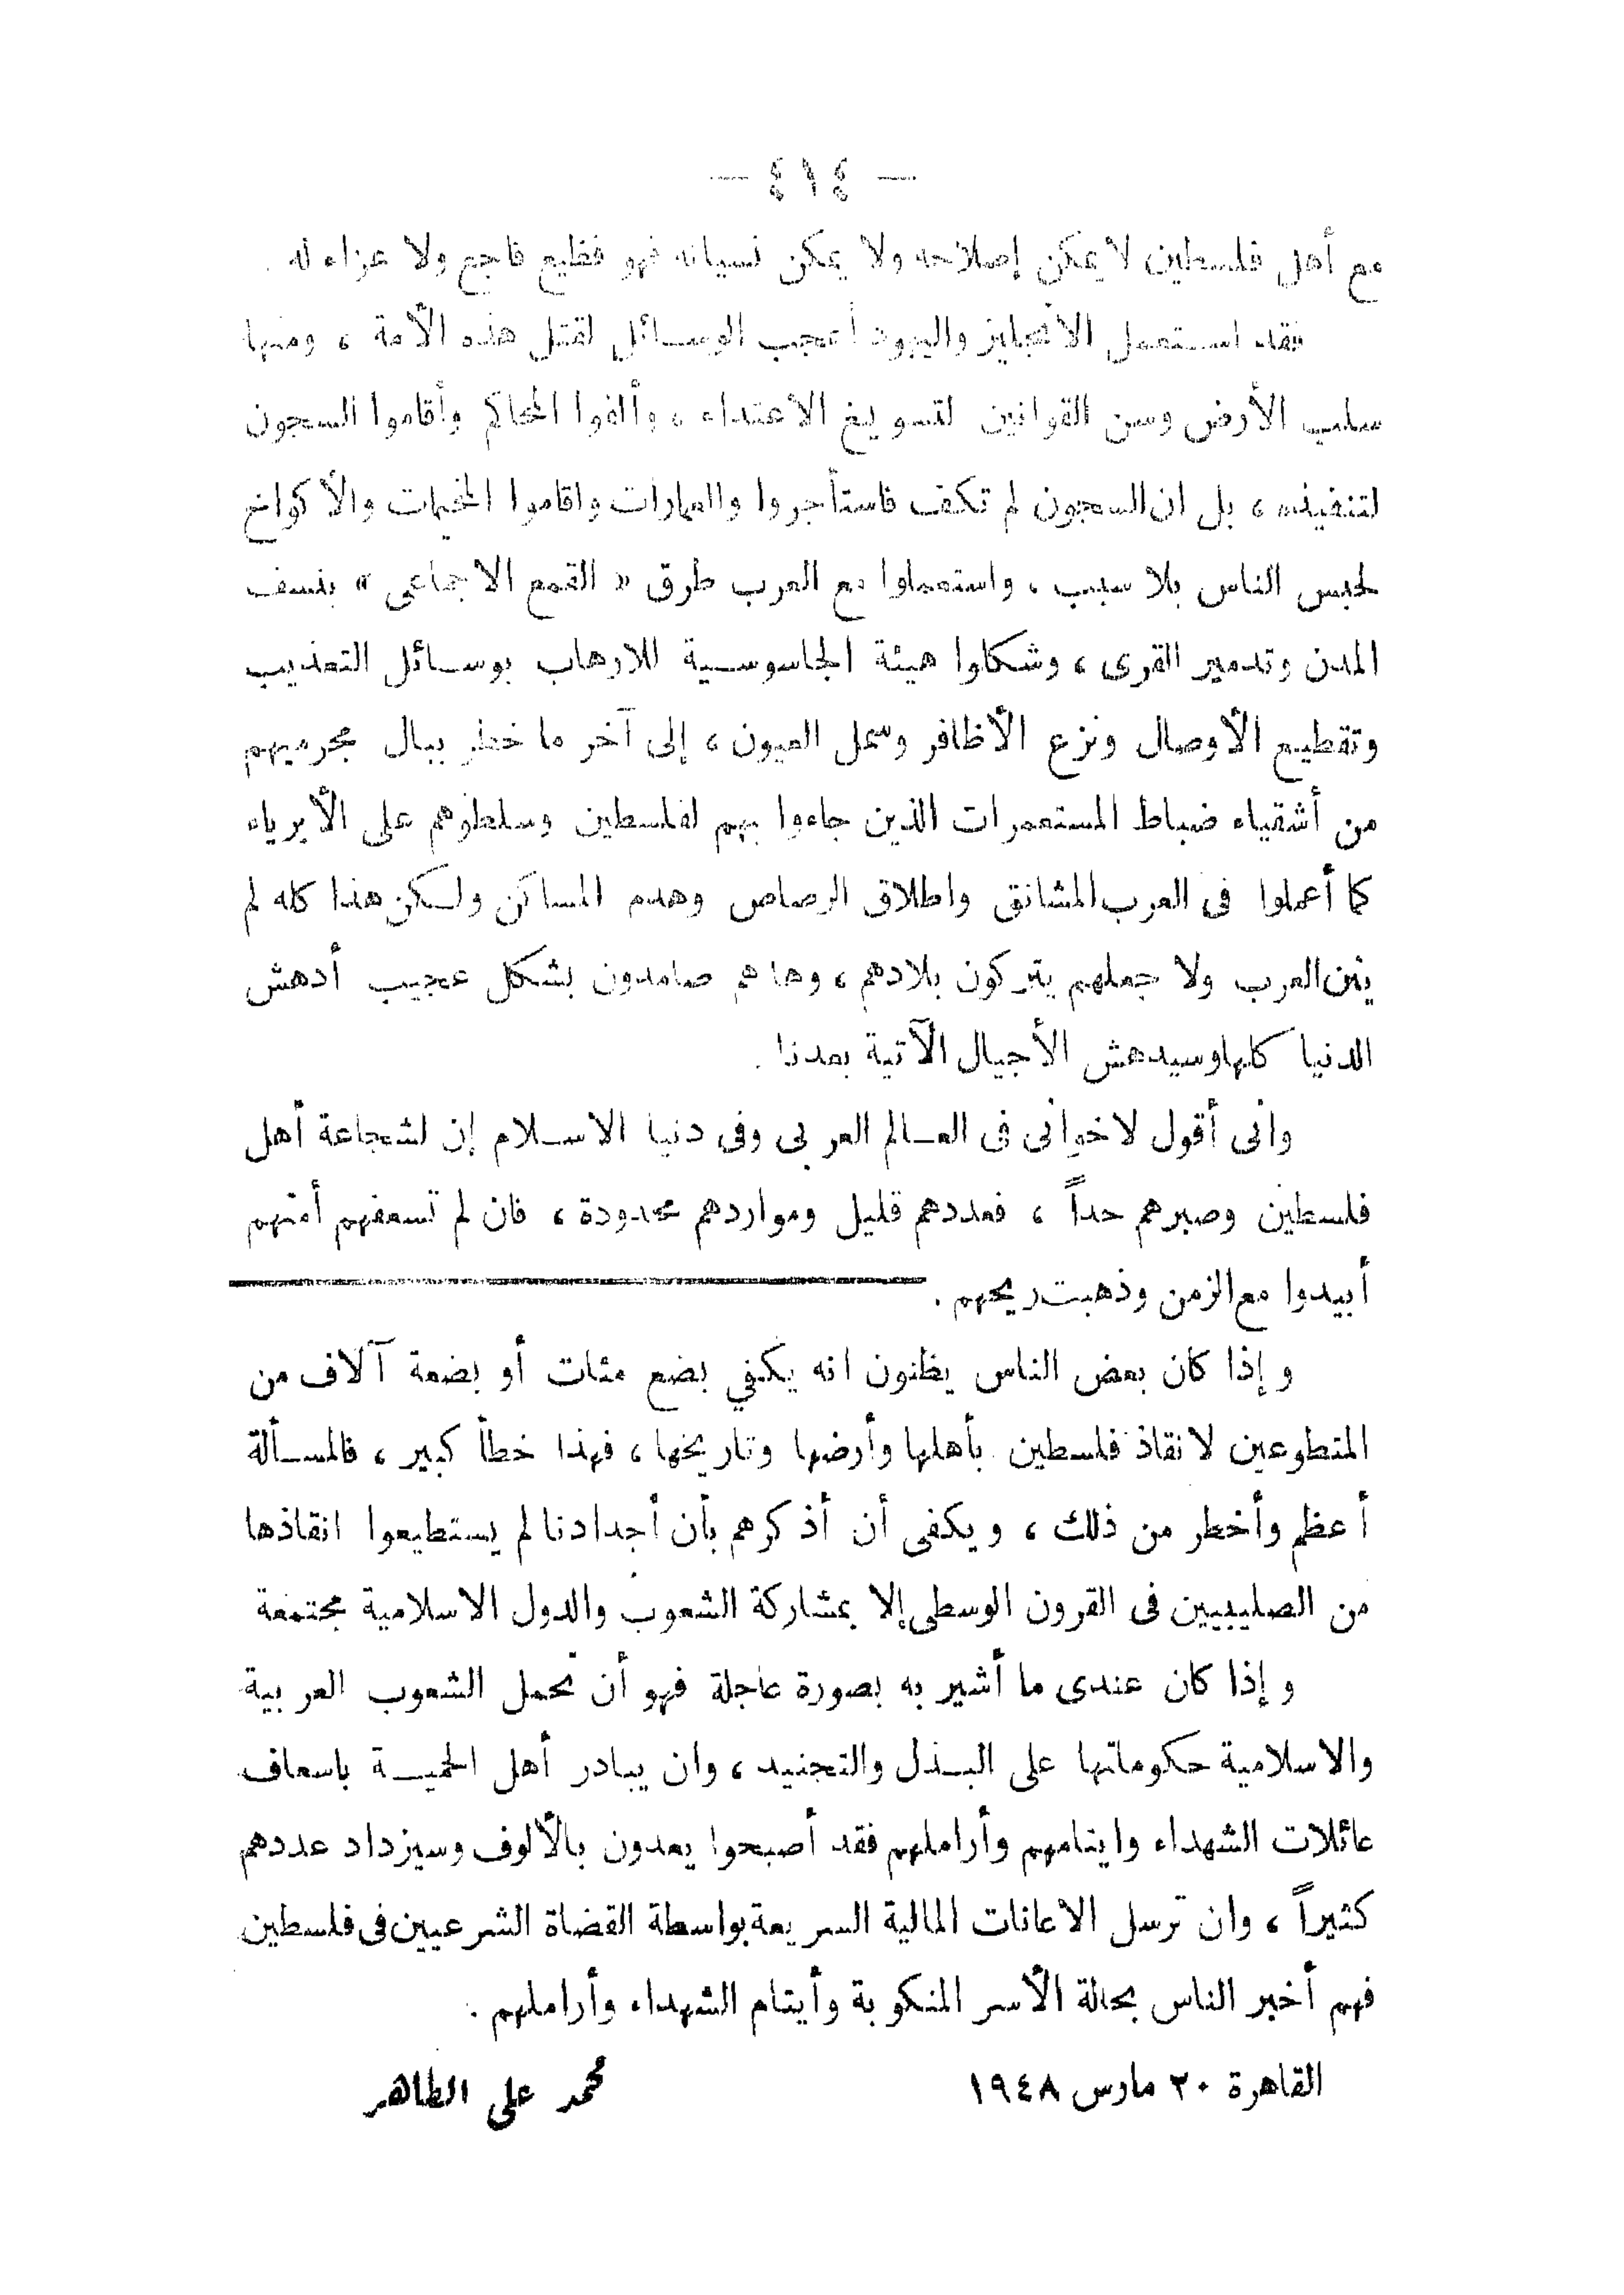 — ٤١٤ —
مع أهل فلسطين لا يمكن إصلاحه ولا يمكن نسيانه فهو فظيع فاجع ولا عزاء له .
فقد استعمل الانجليز واليهود أعجب الوسائل لقتل هذه الأمة ، ومنها
سلب الأرض وسن القوانين لتسويغ الاعتداء ، وألفوا المحاكم وأقاموا السجون
لتنفيذه ، بل ان السجون لم تكف فاستأجروا والعمارات واقاموا المخيمات والأكواخ
لحبس الناس بلا سبب ، واستعملوا مع العرب طرق « القمع الاجماعى » بنسف
المدن وتدمير القرى ، وشكلوا هيئة الجاسوسية للارهاب بوسائل التعذيب
وتقطيع الأوصال ونزع الأظافر وسمل العيون ، إلى آخر ما خطر ببال مجرميهم
من أشقياء ضباط المستعمرات الذين جاءوا بهم لفلسطين وسلطوهم على الأبرياء
كما أعملوا فى العرب المشانق واطلاق الرصاص وهدم المساكن ولكن هذا كله لم
يثن العرب ولا جعلهم يتركون بلادهم ، وها هم صامدون بشكل عجيب أدهش
الدنيا كلها وسيدهش الأجيال الآتية بعدنا .
وانى أقول لاخوانى فى العالم العربى وفى دنيا الاسلام إن لشجاعة أهل
فلسطين وصبرهم حداً ، فعددهم قليل ومواردهم محدودة ، فان لم تسعفهم أمتهم
أبيدوا مع الزمن وذهبت ريحهم .
وإذا كان بعض الناس يظنون انه يكفي بضع مئات أو بضعة آلاف من
المتطوعين لانقاذ فلسطين بأهلها وأرضها وتاريخها ، فهذا خطأ كبير ، فالمسألة
أعظم وأخطر من ذلك ، ويكفى أن أذكرهم بأن أجدادنا لم يستطيعوا انقاذها
من الصليبيين فى القرون الوسطى إلا بمشاركة الشعوب والدول الاسلامية مجتمعة
وإذا كان عندى ما أشير به بصورة عاجلة فهو أن تحمل الشعوب العربية
والاسلامية حكوماتها على البذل والتجنيد ، وان يبادر أهل الحمية باسعاف
عائلات الشهداء وايتامهم وأراملهم فقد أصبحوا يعدون بالألوف وسيزداد عددهم
كثيراً ، وان ترسل الاعانات المالية السريعة بواسطة القضاة الشرعيين فى فلسطين
فهم أخبر الناس بحالة الأسر المنكوبة وأيتام الشهداء وأراملهم .
القاهرة ٢٠ مارس ١٩٤٨ محمد على الطاهر